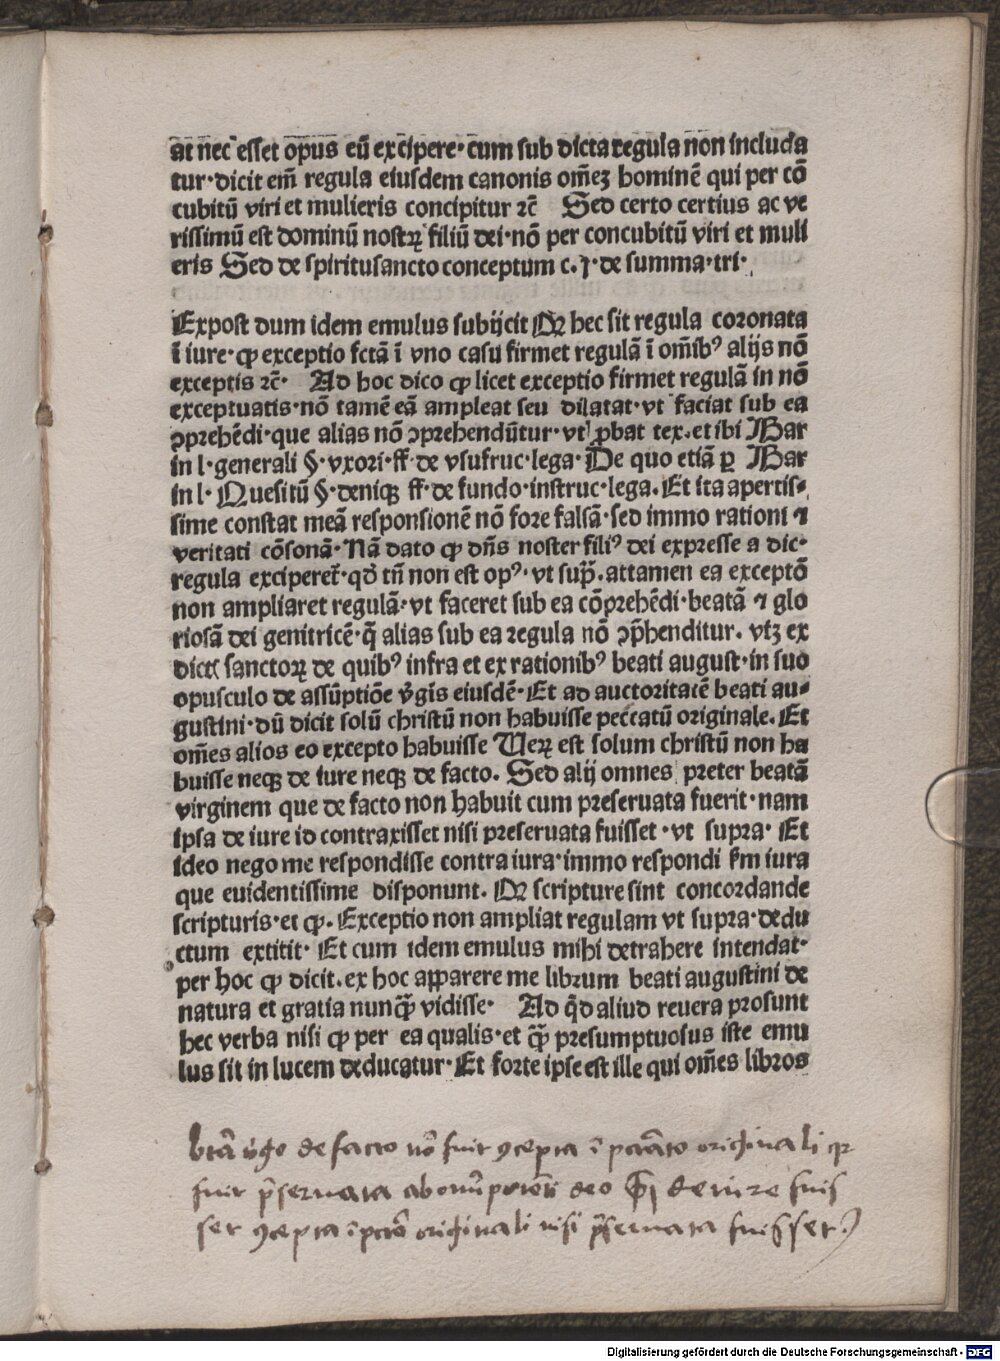 at nec esset opus eū excipere· cum sub dicta regula non includa
tur· dicit em̄ regula eiusdem canonis om̄eꝫ hominē qui per cō
cubitū viri et mulieris concipitur ⁊c̄ Sed certo certius ac ve
rissimū est dominū nostrꝝ filiū dei· nō per concubitū viri et muli
eris Sed de spiritusancto conceptum c. ꝭ· de summa· tri·
Expost dum idem emulus subijcit Qꝛ hec sit regula coronata
ī iure· ꝙ exceptio fctā ī vno casu firmet regulā ī om̄ibꝰ alijs nō
exceptis ⁊c̄· Ad hoc dico ꝙ licet exceptio firmet regulā in nō
exceptuatis· nō tamē eā ampleat seu dilatat· vt faciat sub ea
ꝯprehēdi· que alias nō ꝯprehendūtur· vt ꝓbat tex. et ibi Bar
in l· generali §· vxori· ff· de vsufruc· lega· De quo etiā ꝑ Bar
in l· Quesitū §· deniqꝫ ff· de fundo· instruc· lega. Et ita apertis⸗
sime constat meā responsionē nō fore falsā· sed immo rationi ⁊
veritati cōsonā· Nā dato ꝙ dn̄s noster filiꝰ dei expresse a dic·
regula exciperet̄· qd̄ tn̄ non est opꝰ· vt sup̄. attamen ea exceptō
non ampliaret regulā· vt faceret sub ea cōprehēdi· beatā ⁊ glo
riosā dei genitricē· q̄ alias sub ea regula nō ꝯp̄henditur. vtꝫ ex
dictꝭ sanctorꝝ de quibꝰ infra et ex rationibꝰ beati august· in suo
opusculo de assūptiōe v̄gīs eiusdē· Et ad auctoritatē beati au⸗
gustini· dū dicit solū christū non habuisse peccatū originale. Et
om̄es alios eo excepto habuisse Verꝝ est solum christū non ha
buisse neqꝫ de iure neqꝫ de facto. Sed alij omnes preter beatā
virginem que de facto non habuit cum preseruata fuerit· nam
ipsa de iure id contraxisset nisi preseruata fuisset· vt supra· Et
ideo nego me respondisse contra iura· immo respondi ẜm iura
que euidentissime disponunt. Qꝛ scripture sint concordande
scripturis· et ꝙ. Exceptio non ampliat regulam vt supra· dedu
ctum extitit· Et cum idem emulus mihi detrahere intendat·
per hoc ꝙ dicit. ex hoc apparere me librum beati augustini de
natura et gratia nunqͫ̄ vidisse· Ad qd̄ aliud reuera prosunt
hec verba nisi ꝙ per ea qualis· et qͫ̄ presumptuosus iste emu
lus sit in lucem deducatur· Et forte ipse est ille qui om̄es libros
btā v̄go de facto nō fuit ꝯcepta ī pctāto originali qꝛ
fuit p̄seruata ab deo de iure fuis
set ꝯcepta ī pctō originali nisi p̄seruata fuisset